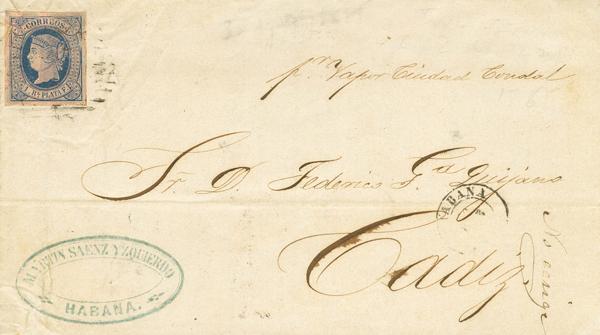 CORREOS
1 Rl PLATA F.
pr. Vapor Ciudad Condal
Sr. D. Federico G. Quijano
HABANA
Cádiz
MARTIN SAENZ YZQUIERDO
HABANA.
No